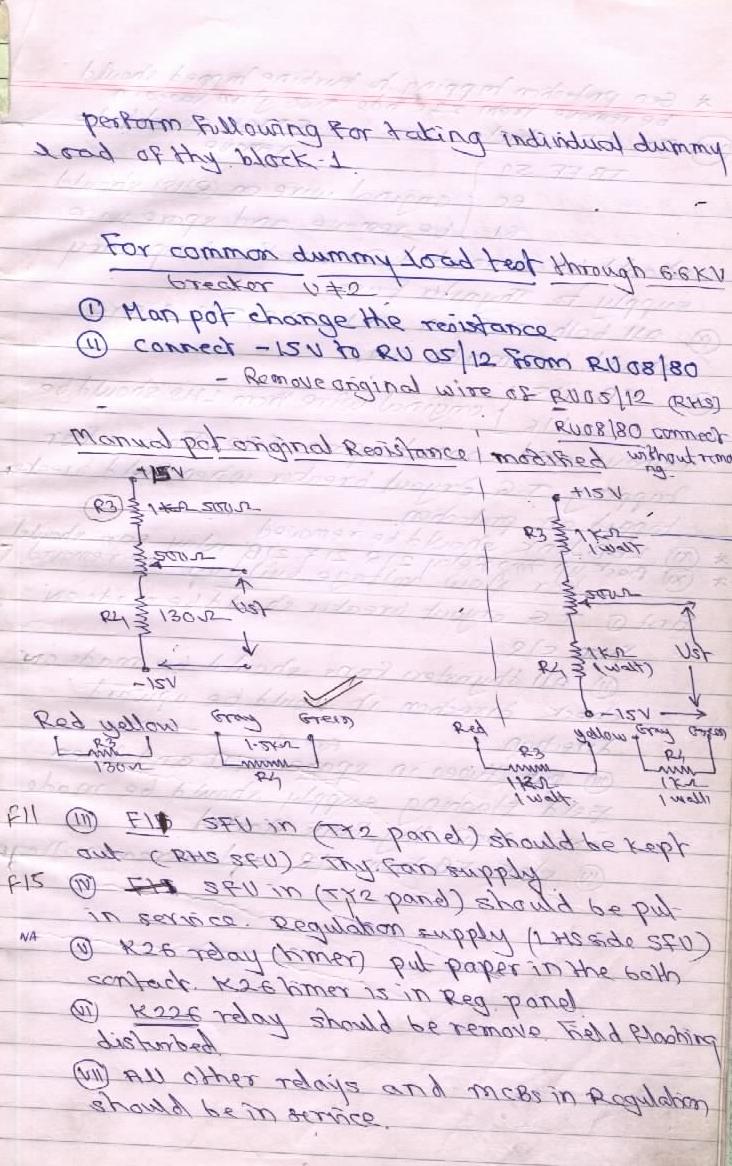 perform following for taking individual dummy
load of thy. block-1.
For common dummy load test through 6.6KV
brecker U#2
(I) Man pot change the resistance
(II) connect -15V to RU 05/12 from RU08/80
- Remove original wire of RU05/12 (RHS)
RU08/80 connect
without remo
ng.
Manual pot original Resistance | modified
+15V
R3 500Ω
500Ω
Ust
R4 130Ω
-15V
+15V
R3 1KΩ
1 watt
500Ω
Ust
R4 1KΩ
(1 watt)
-15V
Red yellow Gray Green
R3
130Ω
1.5KΩ
R4
Red yellow Gray Green
R3
1KΩ
1 watt
R4
1KΩ
1 watt
F11 (III) F11 SFU in (TY2 panel) should be kept
out (RHS SFU) Thy. fan supply
F15 (IV) SFU in (TY2 panel) should be put
in service. Regulation supply (LHS side SFU)
NA (V) K26 relay (timer) put paper in the both
contact. K26 timer is in Reg. panel
(VI) K226 relay should be remove. Field flashing
disturbed
(VII) All other relays and MCBs in Regulation
should be in service.